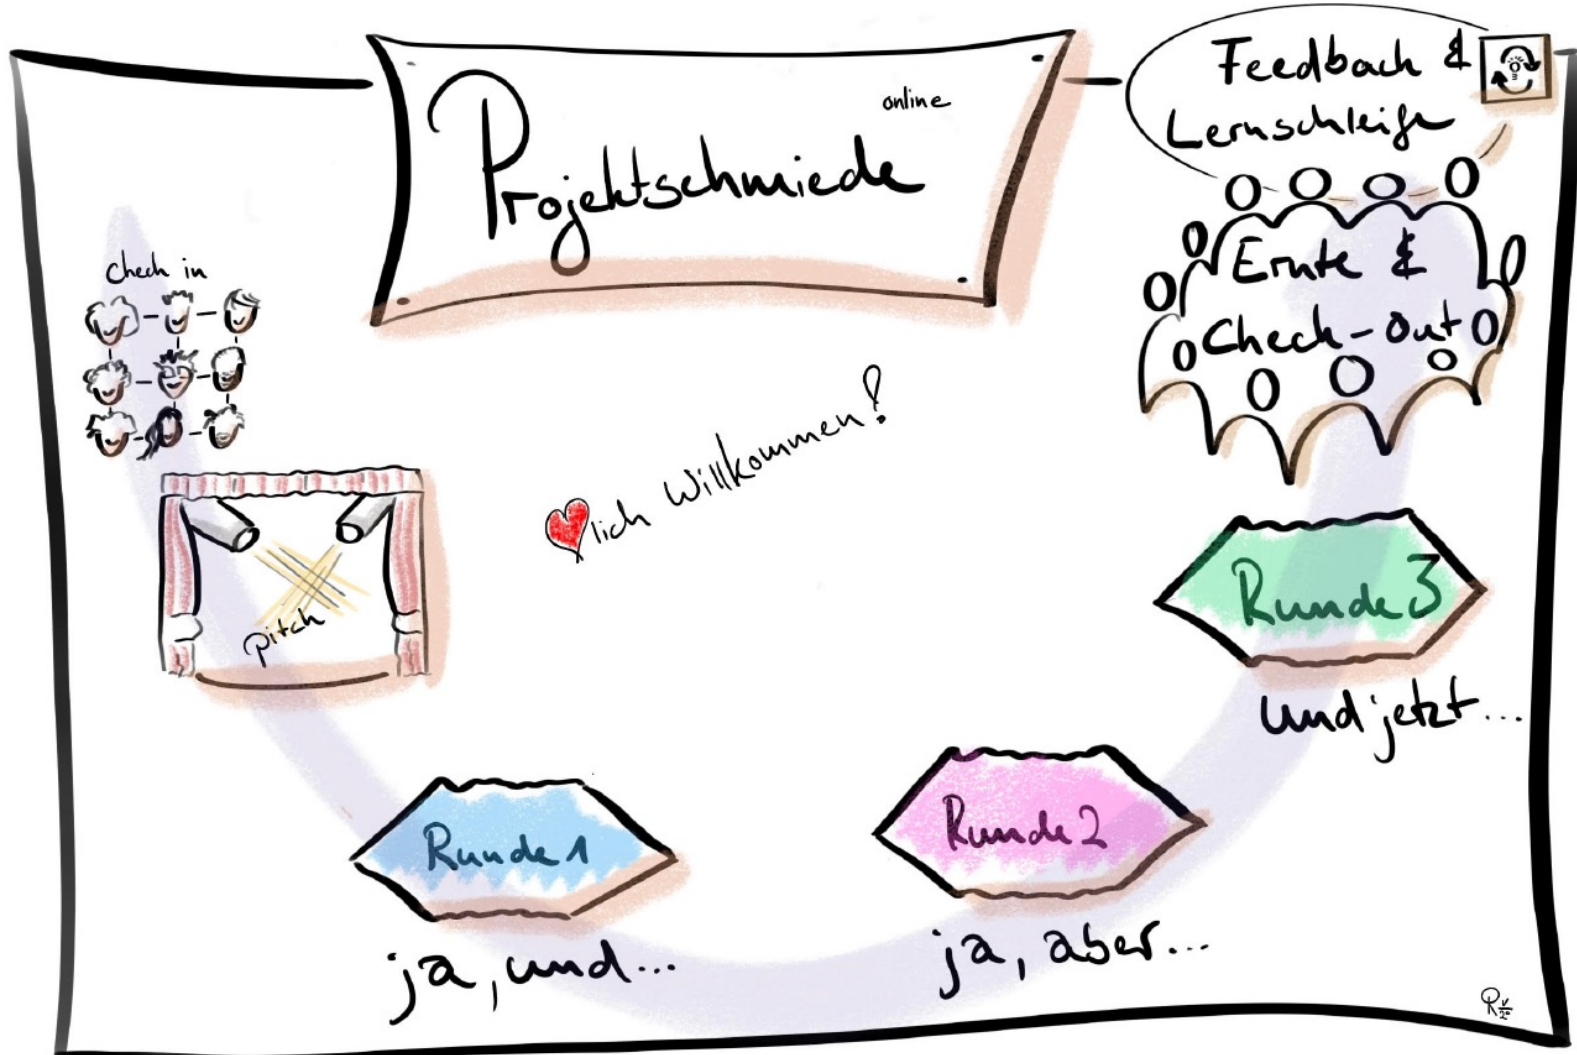 Projektschmiede
online
Feedback &
Lernschleife
Ernte &
Check-Out
check in
pitch
lich Willkommen!
Runde 1
ja, und...
Runde 2
ja, aber...
Runde 3
und jetzt...